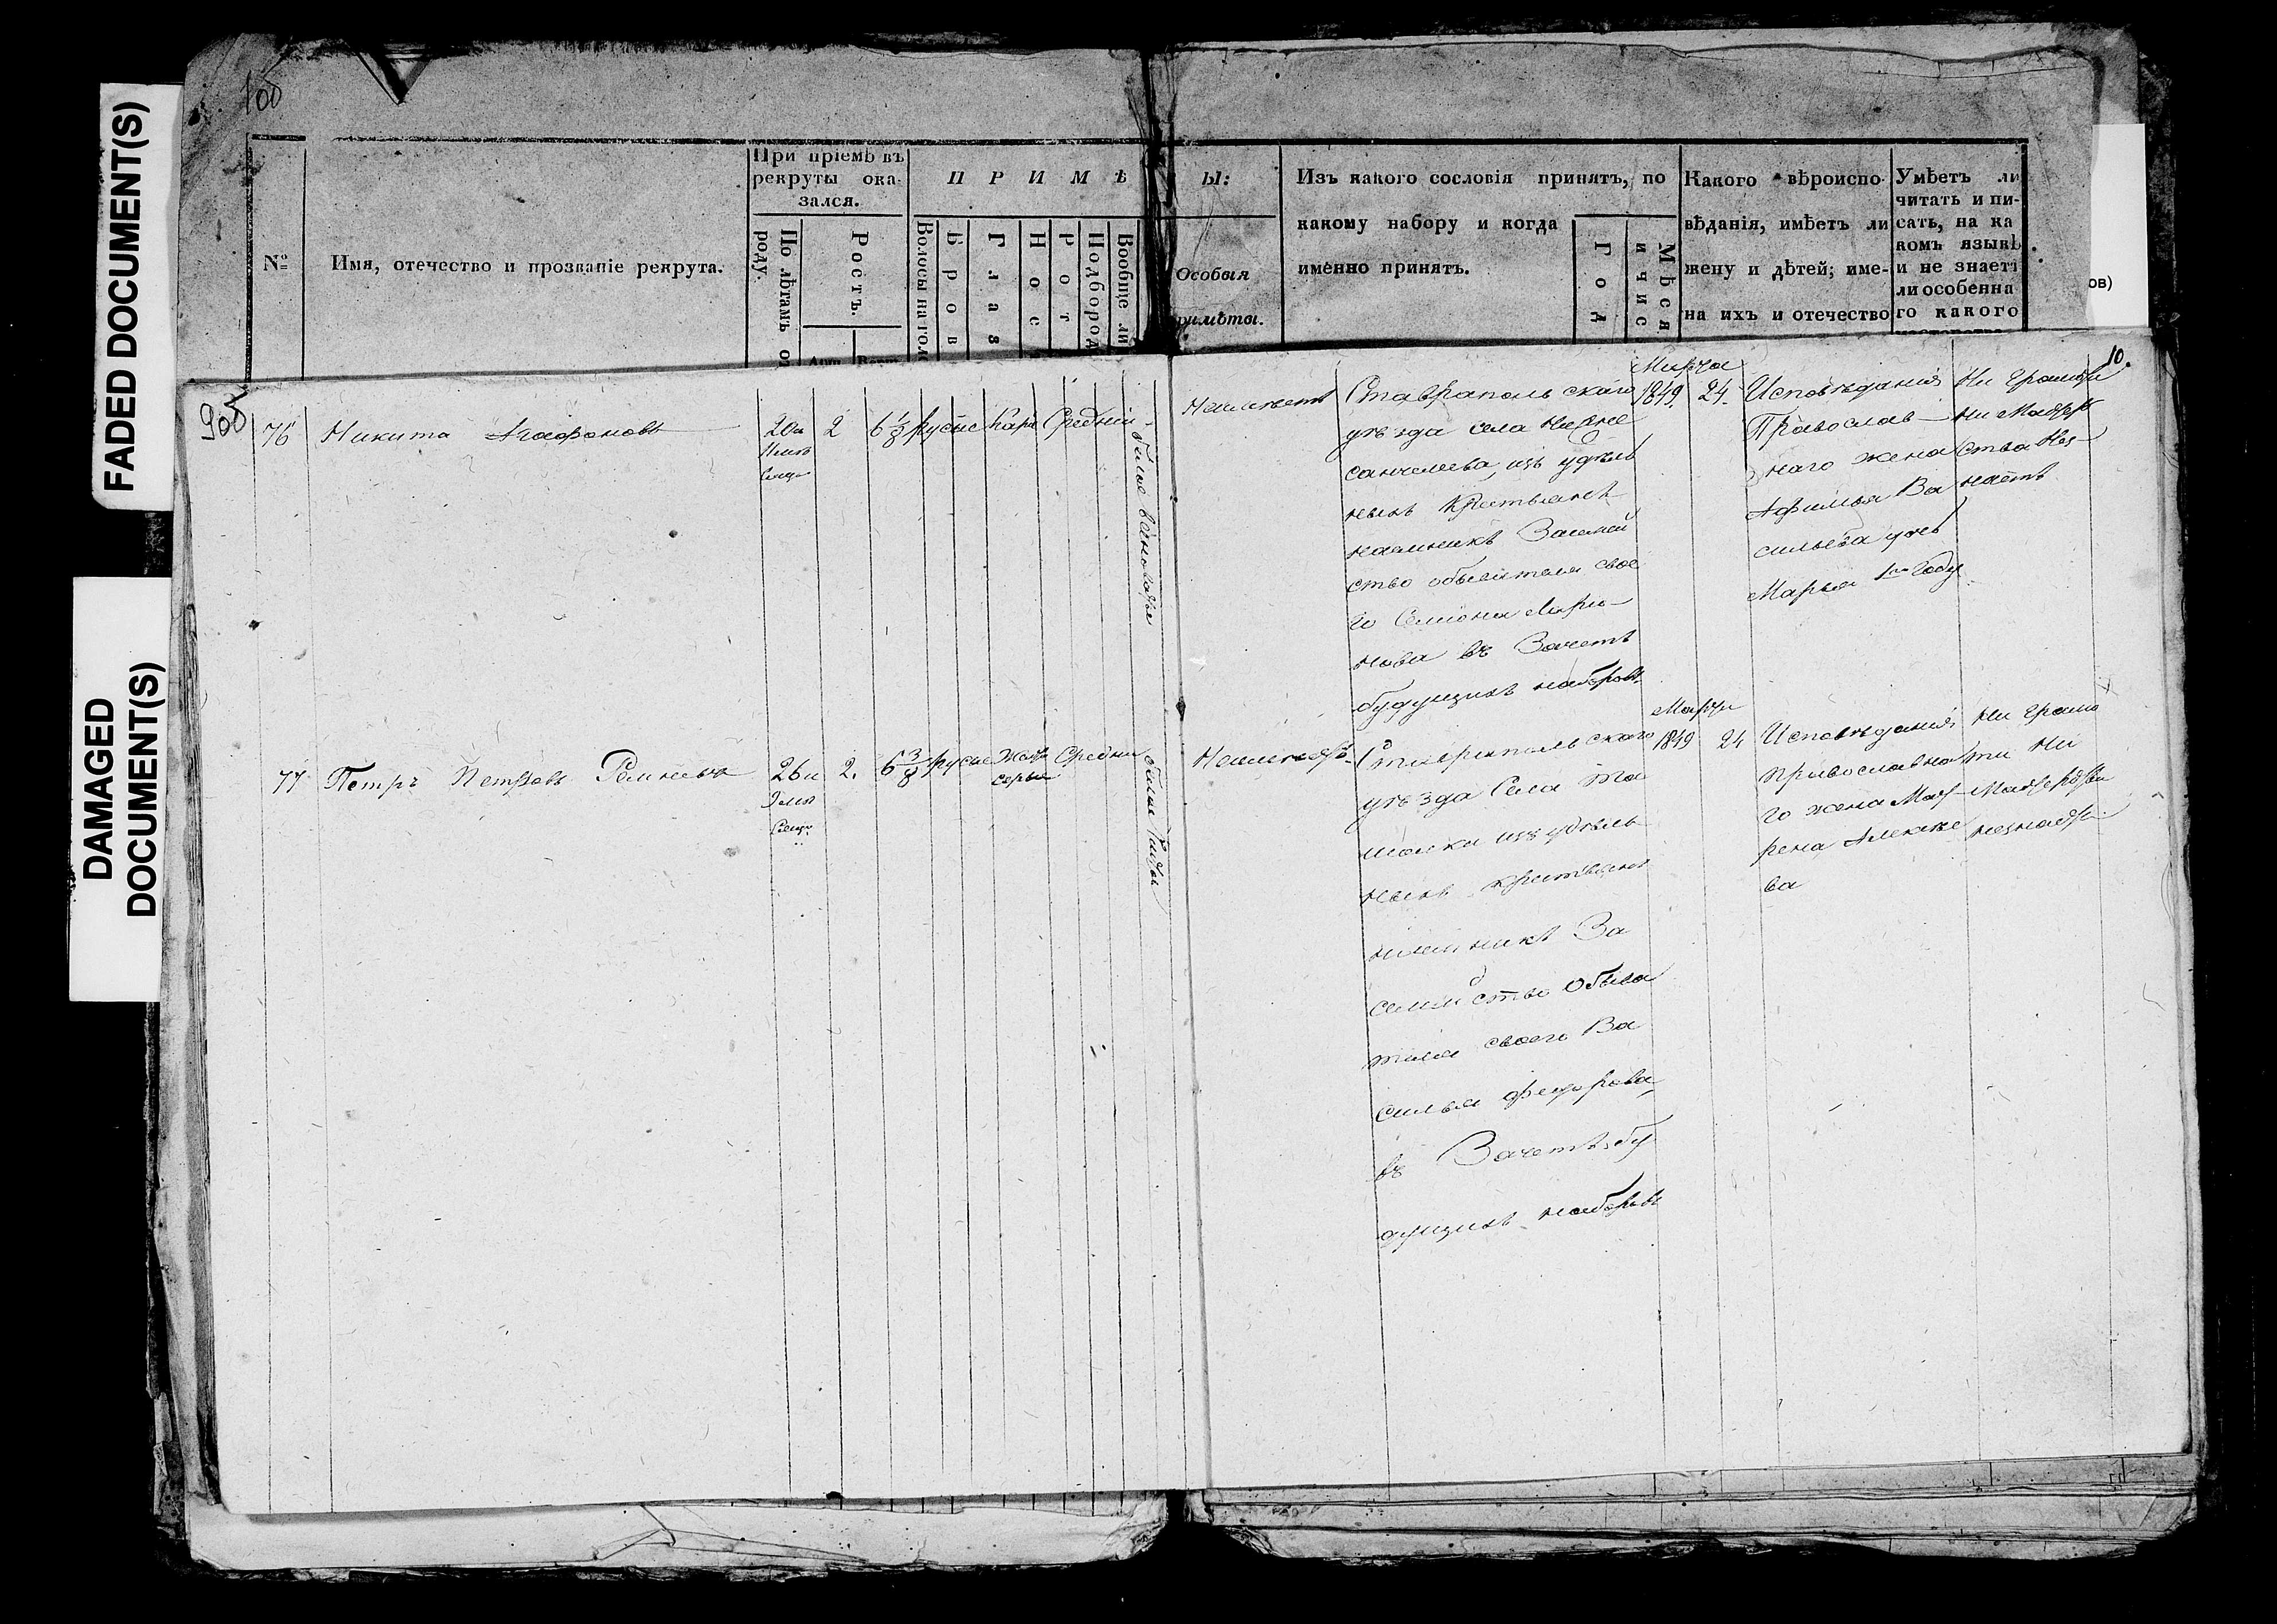 FADED DOCUMENT(S)
DAMAGED
DOCUMENT(S)
ов)
№
Имя, отечество и прозваніе рекрута.
При пріемѣ въ
рекруты ока-
зался.
По лѣтамъ от
роду.
Ростъ.
П Р И М Ѣ
Ы:
Волосы на гол
Бров
Глаз
Нос
Рот
Подбород
Вообще ли
Особыя
римѣты.
Изъ какого сословія принятъ, по
какому набору и когда
именно принятъ.
Год
Мѣся
и чис
Какого вѣроиспо-
вѣданія, имѣетъ ли
жену и дѣтей; име-
на ихъ и отечество
Умѣетъ ли
читать и пи-
сать, на ка
комъ языкѣ
и не знаетъ
ли особенна
го какого
10.
905
76
Никита Агафоновъ
20и
2
6 1/8
русые
Кари
Средній
бѣлое
Неимѣетъ
Ставропольскаго
уѣзда села Нижне
санчелеева, изъ удѣль
ныхъ Крестьянъ
наемникъ Засемей
ство обывателя свое
го Семиона Ларио-
нова въ Зачетъ
будущихъ наборовъ
Марта
1849.
24.
Исповѣданія
Православ-
наго жена
Афимья Ва
сильева дочь
Марья 1го году
Ни грамоты
ни Мастер
ства Нез
наетъ
77
Петръ Петровъ
26и
2.
6 3/8
русые
серые
Средни
Ставропольскаго
уѣзда Села Та
шолки изъ удѣль
ныхъ крестьянъ
наемникъ За
семейство обыва
теля своего Ва
силья федорова,
въ Зачетъ бу
дущихъ наборовъ
Марта
1849
24
Исповѣданія
православна
го жена Мат
рена Алексее
ва
Ни грамо
ты Ни
Мастерства
незнаетъ